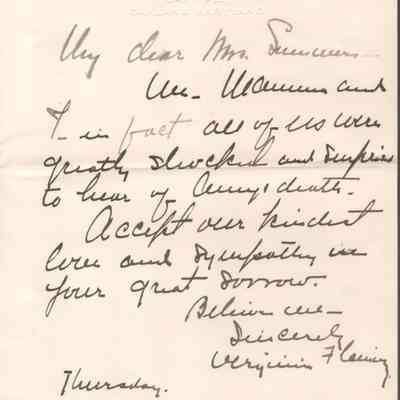 OAKLAND MARYLAND
My dear Mrs. Summers—
Mr. Mamma and
I - in fact all of us were
greatly shocked and surprise
to hear of Amy's death.
Accept our kindest
love and sympathy in
your great sorrow.
Believe me—
Sincerely
Virginia Fleming
Thursday.